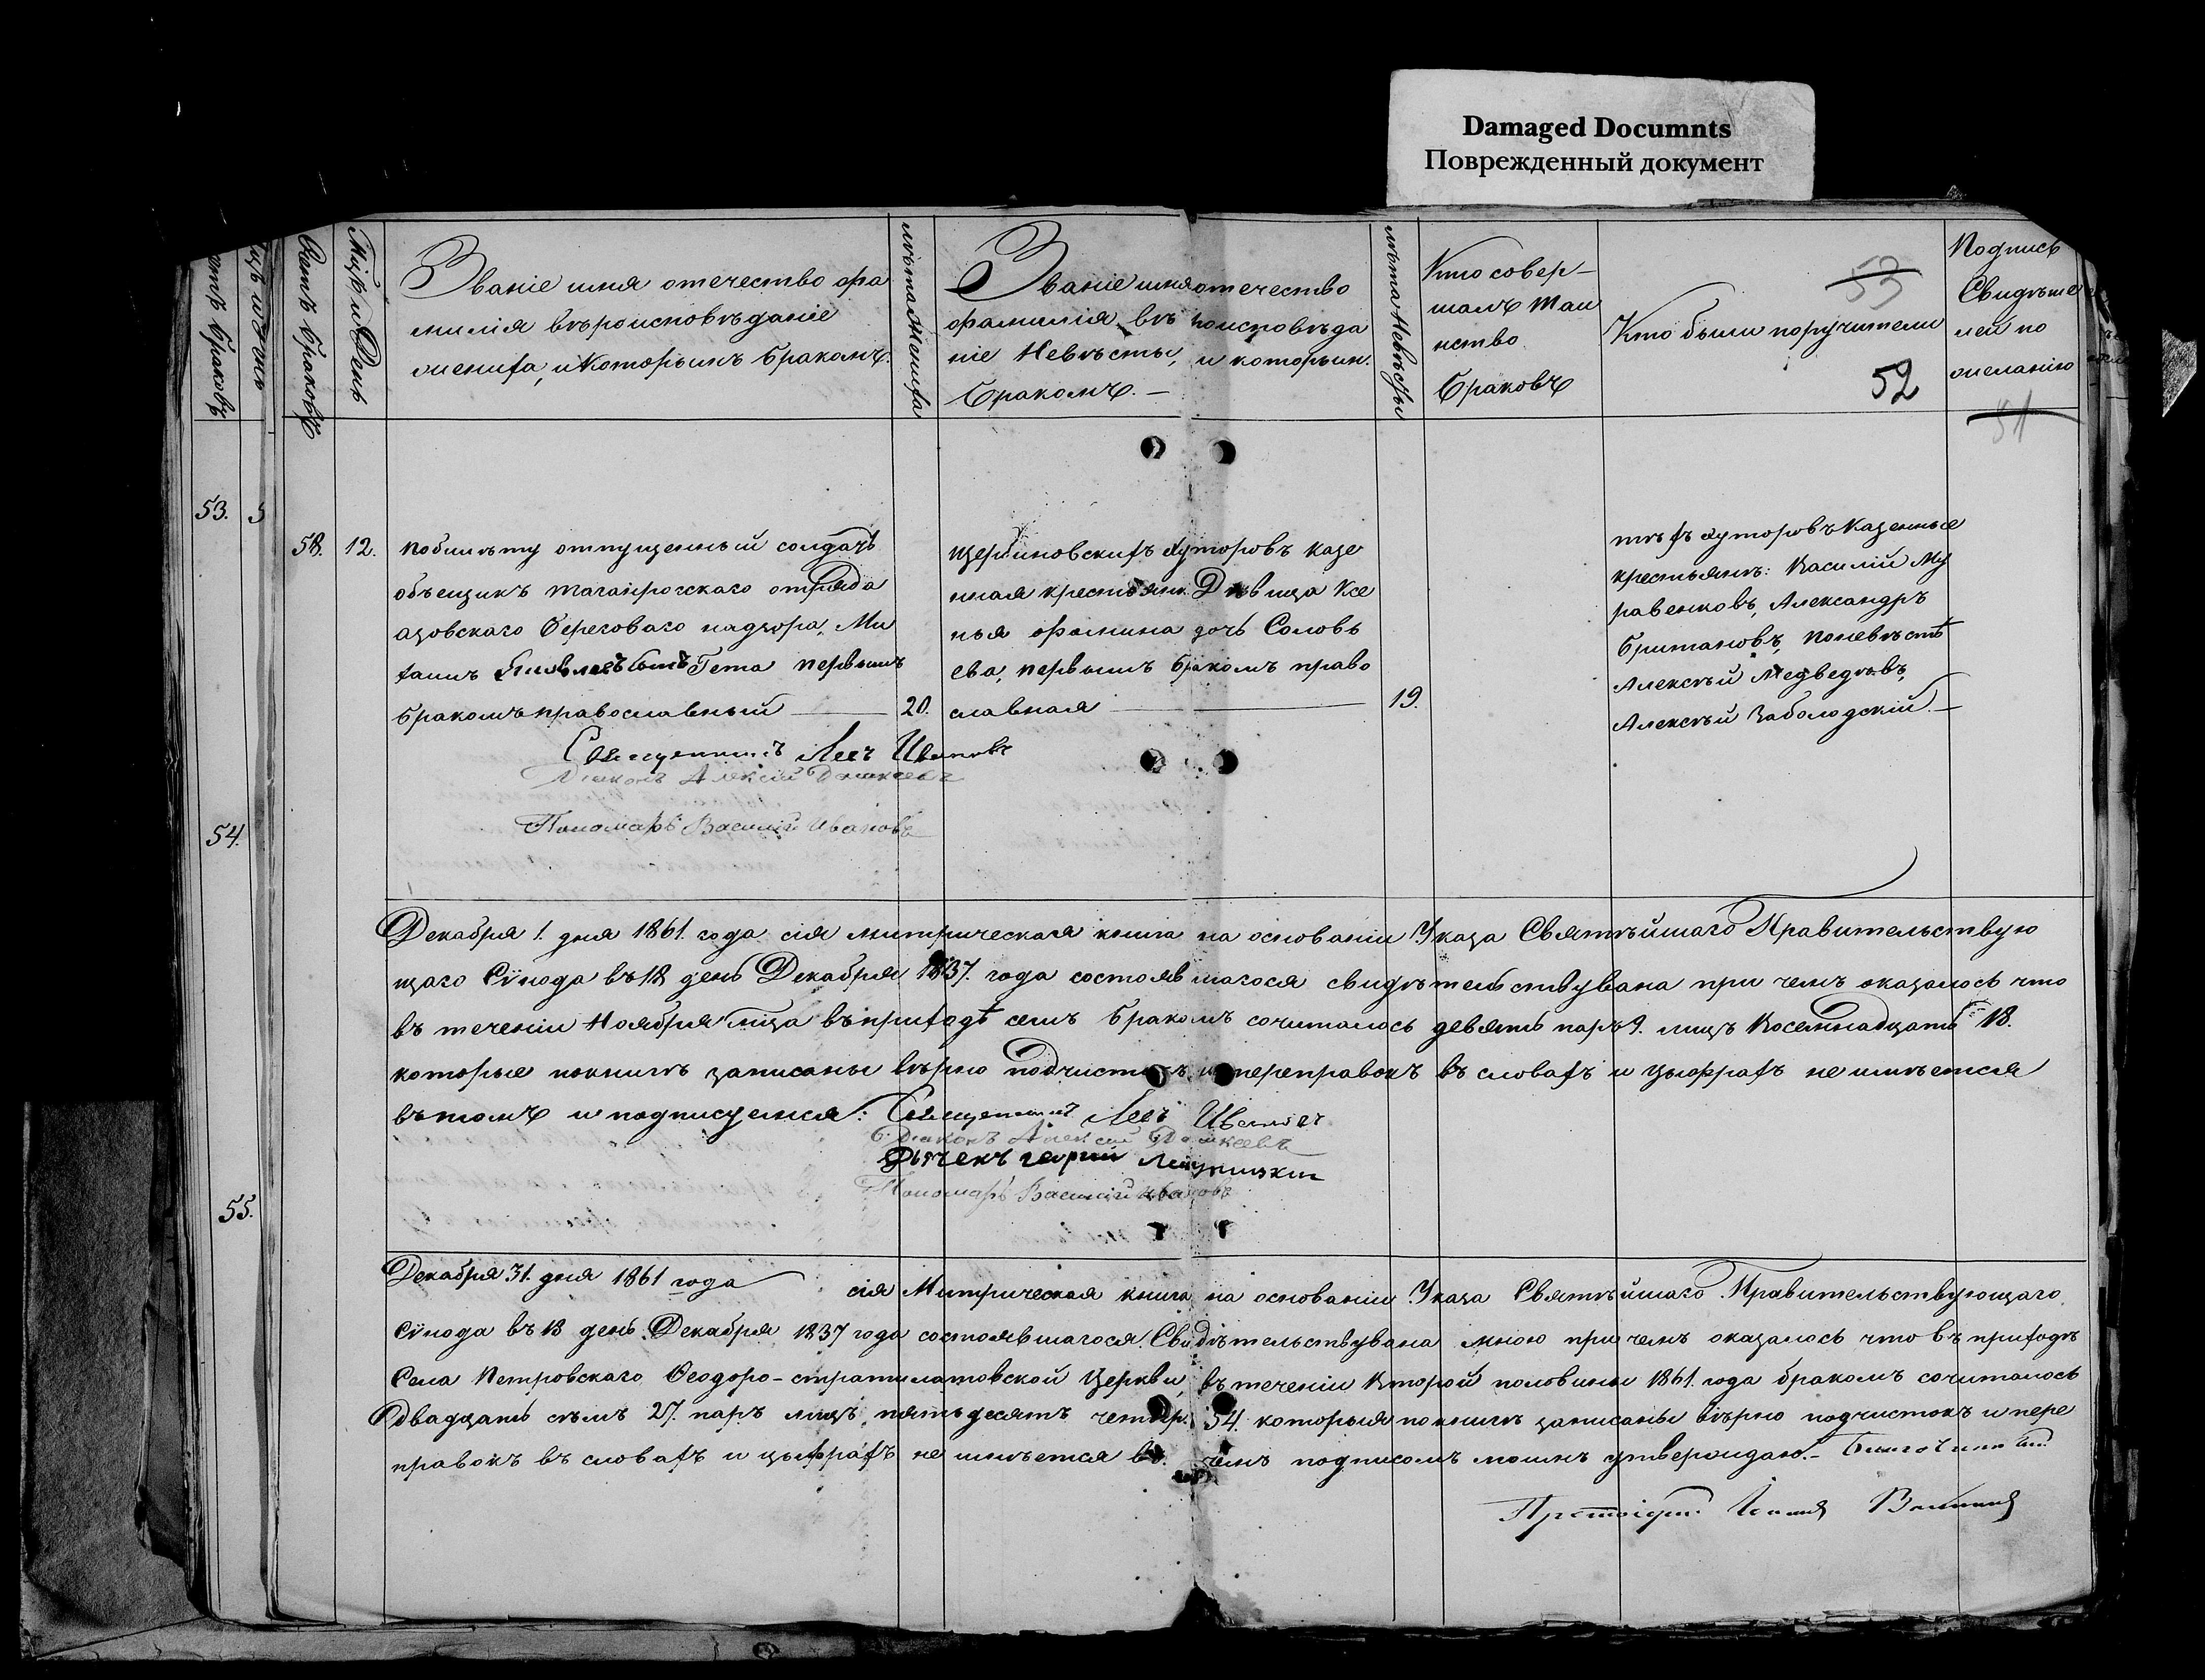 Damaged Documnts
Поврежденный документ
Счетъ браковъ
Мцъ и День
Званіе имя отечество фа
милія вѣроисповѣданіе
жениха, и которымъ бракомъ.
лѣта жениха
Званіе имя отечество
фамилія вѣроисповѣда
ніе Невѣсты, и которым.
бракомъ. —
лѣта Невѣсты
Кто совер-
шалъ Таи
нство
браковъ
Кто были поручители
53
52
Подпись
Свидѣте
лей по
желанію
51
53. 5
54.
55.
58. 12.
побилѣту отпущенный солдатъ
объещикъ таганрогскаго отряда
азовскаго берегового надзора, Ми
хаилъ Гета первымъ
бракомъ православный — 20.
щербиновскихъ хуторовъ казе
нная крестьянк. Дѣвица Ксе
нья фомина дочь Соловь
ева, первымъ бракомъ право
славная — 19.
тѣхъ хуторовъ казенные
крестьянѣ: Василій Му
равенковъ, Александръ
Британовъ, поневѣстѣ
Алексѣй Медведѣвъ,
Алексѣй Заболодскій. —
Священникъ Левъ Ивановъ
Діаконъ Алексій
Пономарь Василій Ивановъ
Декабря 1. дня 1861. года сія митрическая книга на основаніи Указа Святѣйшаго Правительствую
щаго Сѵнода въ 18 день Декабря 1837. года состоявшагося свидѣтельствувана при чемъ оказалось что
въ теченіи Ноября мца въ приходѣ семъ бракомъ сочиталось девять паръ 9. лицъ Восемнадцать 18.
которые покнигѣ записаны вѣрно подчистокъ и переправокъ въ словахъ и цыфрахъ не имѣется
въ томъ и подписуемся: Священникъ Левъ Ивановъ
Діаконъ Алексій
Дьячекъ георгій
Пономарь Василій Ивановъ
Декабря 31. дня 1861 года сія Митрическая книга на основаніи Указа Святѣйшаго Правительствующаго
Сѵнода въ 18 день Декабря 1837 года состоявшагося Свидѣтельствувана мною причемъ оказалось что въ приходѣ
Села Петровскаго Феодоро-стратилатовской Церкви, въ теченіи Второй половины 1861. года бракомъ сочиталось
двадцать сѣмъ 27. паръ лицъ, пятьдесятъ четыр. 54. которыя покнигѣ записаны вѣрно подчистокъ и пере
правокъ въ словахъ и цыфрахъ не имѣется въ чемъ подписомъ моимъ утверждаю. —
Протоіерей